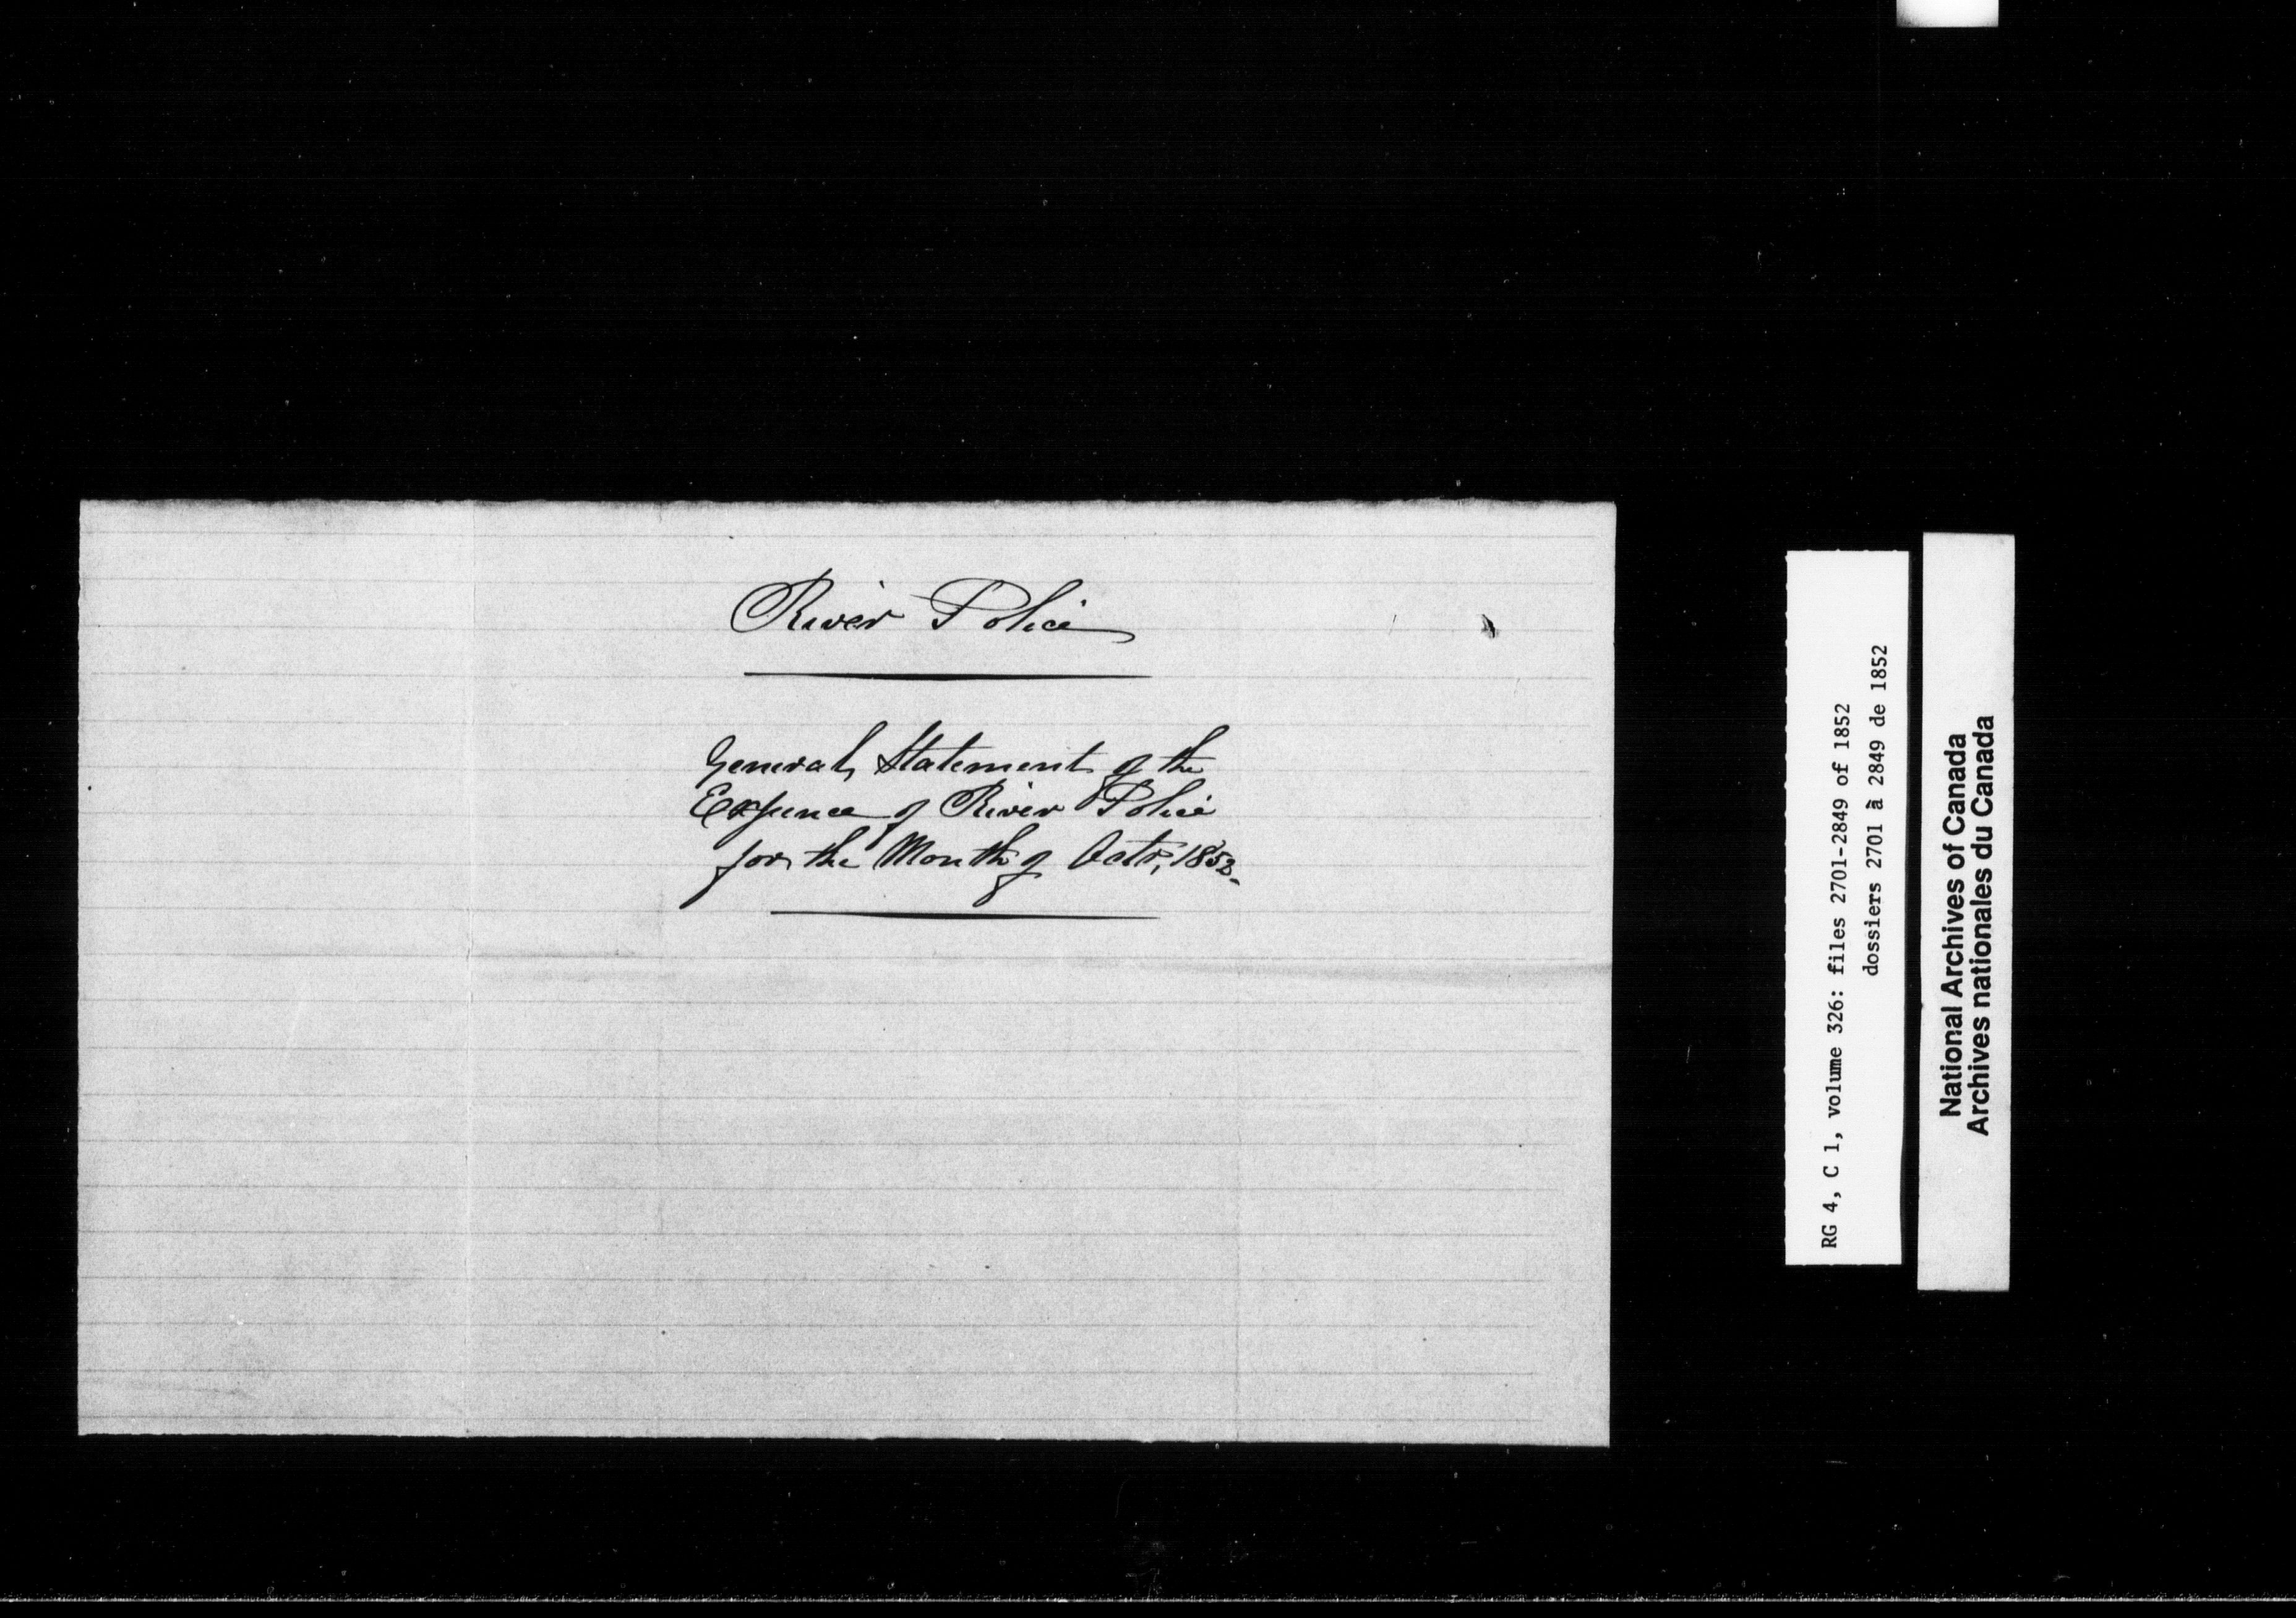 River Police
General Statement of the
Expence of River Police
for the Month of Octr, 1852.
RG 4, C 1, volume 326: files 2701-2849 of 1852
dossiers 2701 à 2849 de 1852
National Archives of Canada
Archives nationales du Canada